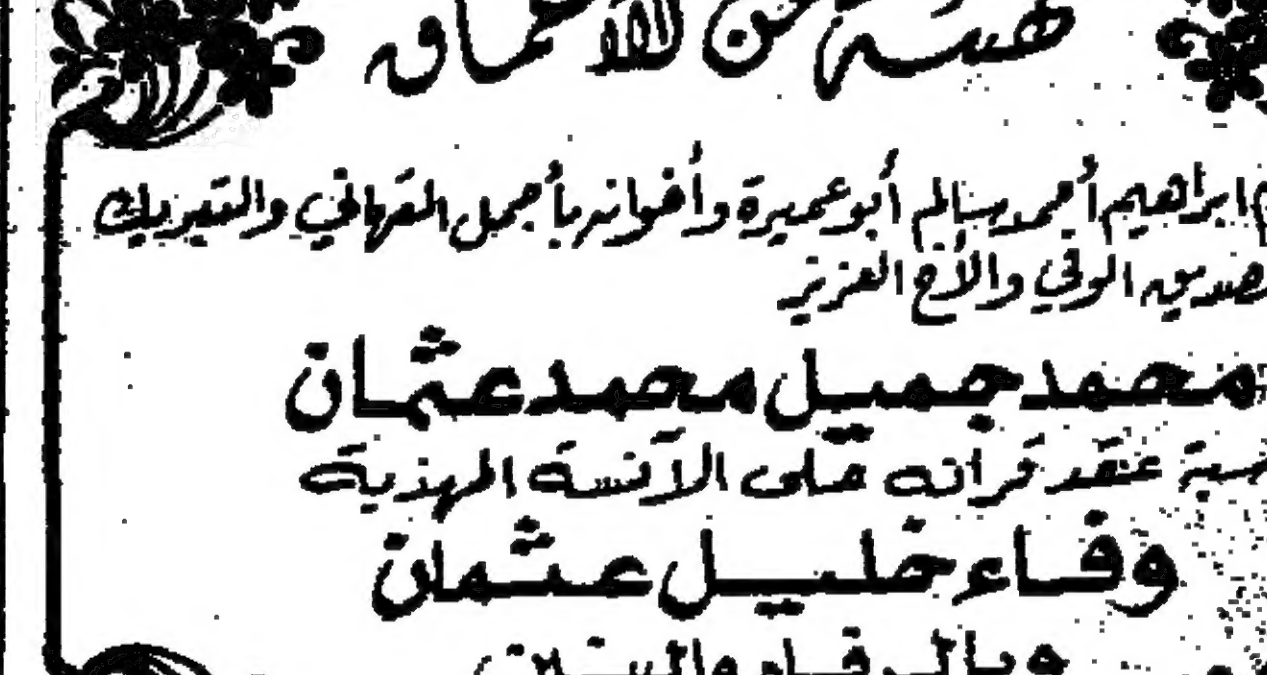 هسة من الأعماق
ابراهيم أحمد سالم أبو عميرة وأخوانه بأجمل التهاني والتبريك
صديق الوفي والأخ العزيز
محمد جميل محمد عثمان
سبة عقد قرانه على الآنسة المهذبة
وفاء خليل عثمان
وبالرفاء والبنين